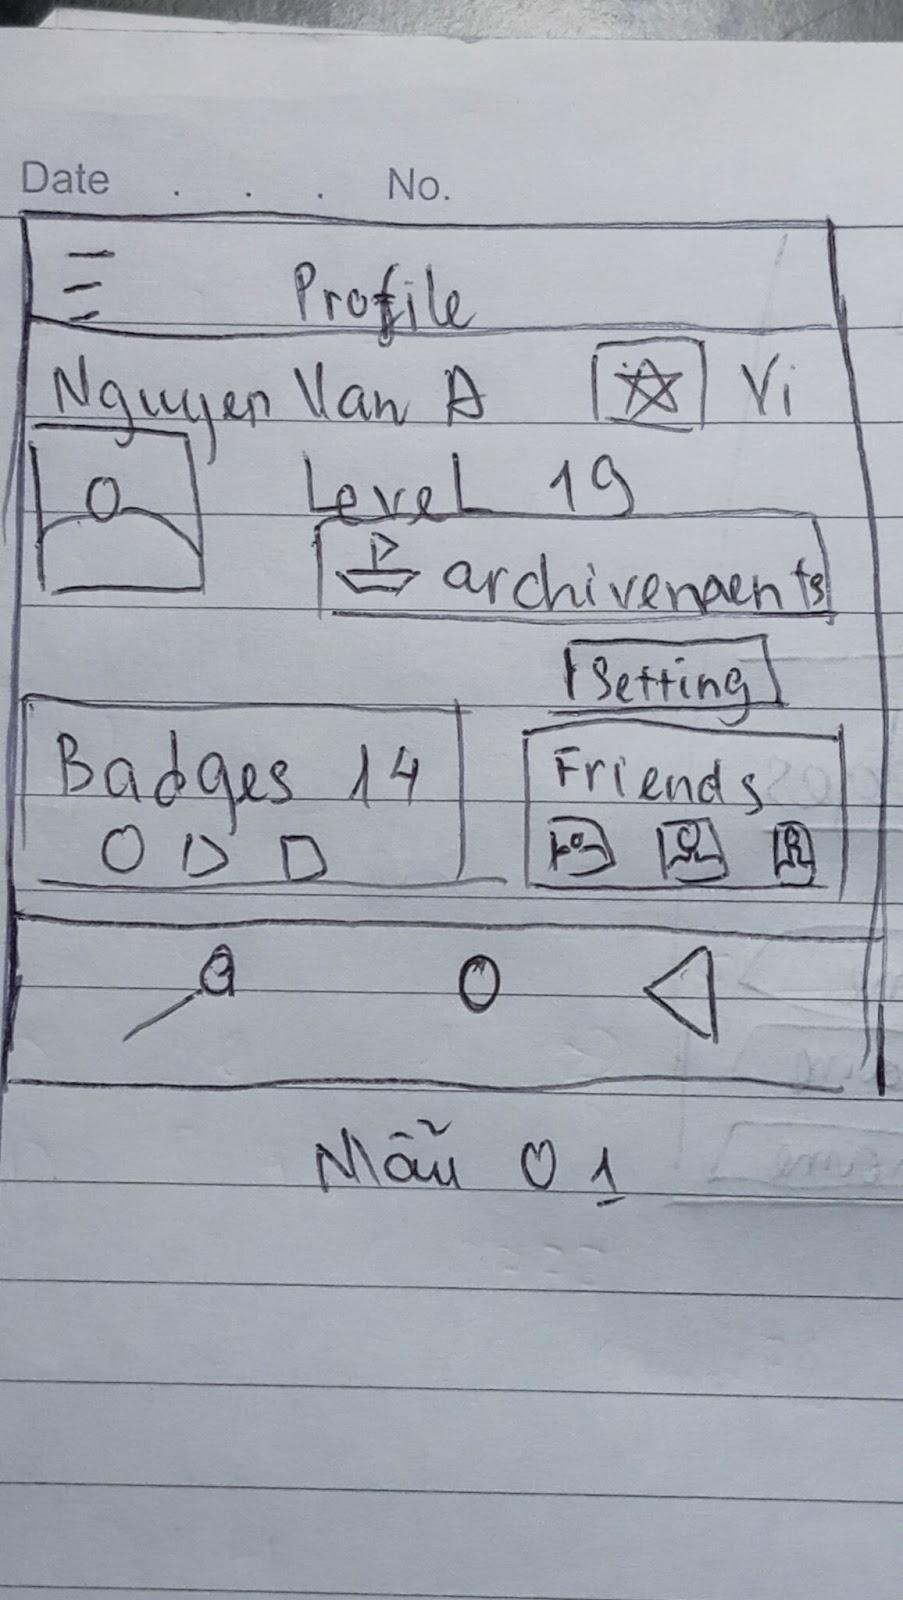 Date . . . No.
Profile
Nguyen Van A Vi
Level 19
archivements
Setting
Badges 14
Friends
Mẫu 01